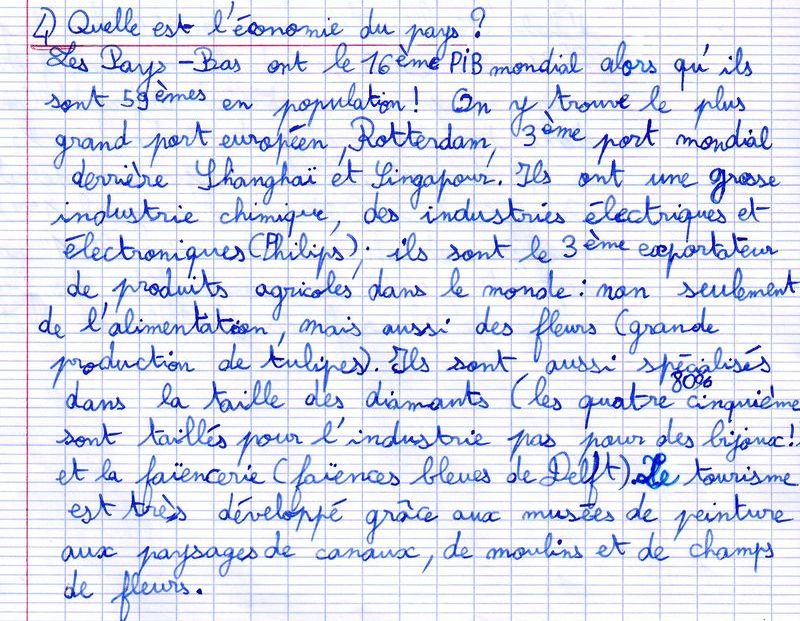 4) Quelle est l'économie du pays ?
Les Pays-Bas ont le 16ème PIB mondial alors qu'ils
sont 59èmes en population! On y trouve le plus
grand port européen, Rotterdam, 3ème port mondial
derrière Shanghaï et Singapour. Ils ont une grosse
industrie chimique, des industries électriques et
électroniques (Philips); ils sont le 3ème exportateur
de produits agricoles dans le monde: non seulement
de l'alimentation, mais aussi des fleurs (grande
production de tulipes). Ils sont aussi spécialisés
80%
dans la taille des diamants (les quatre cinquième
sont taillés pour l'industrie pas pour des bijoux!
et la faïencerie (faïences bleues de Delft). Le tourisme
est très développé grâce aux musées de peinture
aux paysages de canaux, de moulins et de champs
de fleurs.